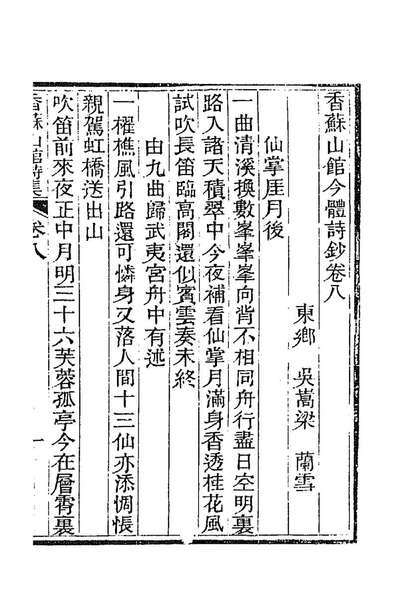 香蘇山館今體詩鈔卷八
東鄉 吳嵩梁 蘭雪
仙掌厓月後
一曲清溪換數峯峯峯向背不相同舟行盡日空明裏
路入諸天積翠中今夜補看仙掌月滿身香透桂花風
試吹長笛臨高閣還似賓雲奏未終
由九曲歸武夷宮舟中有述
一櫂樵風引路還可憐身又落人間十三仙亦添惆悵
親駕虹橋送出山
吹笛前來夜正中月明三十六芙蓉孤亭今在層霄裏
香蘇山館詩集 卷八 一